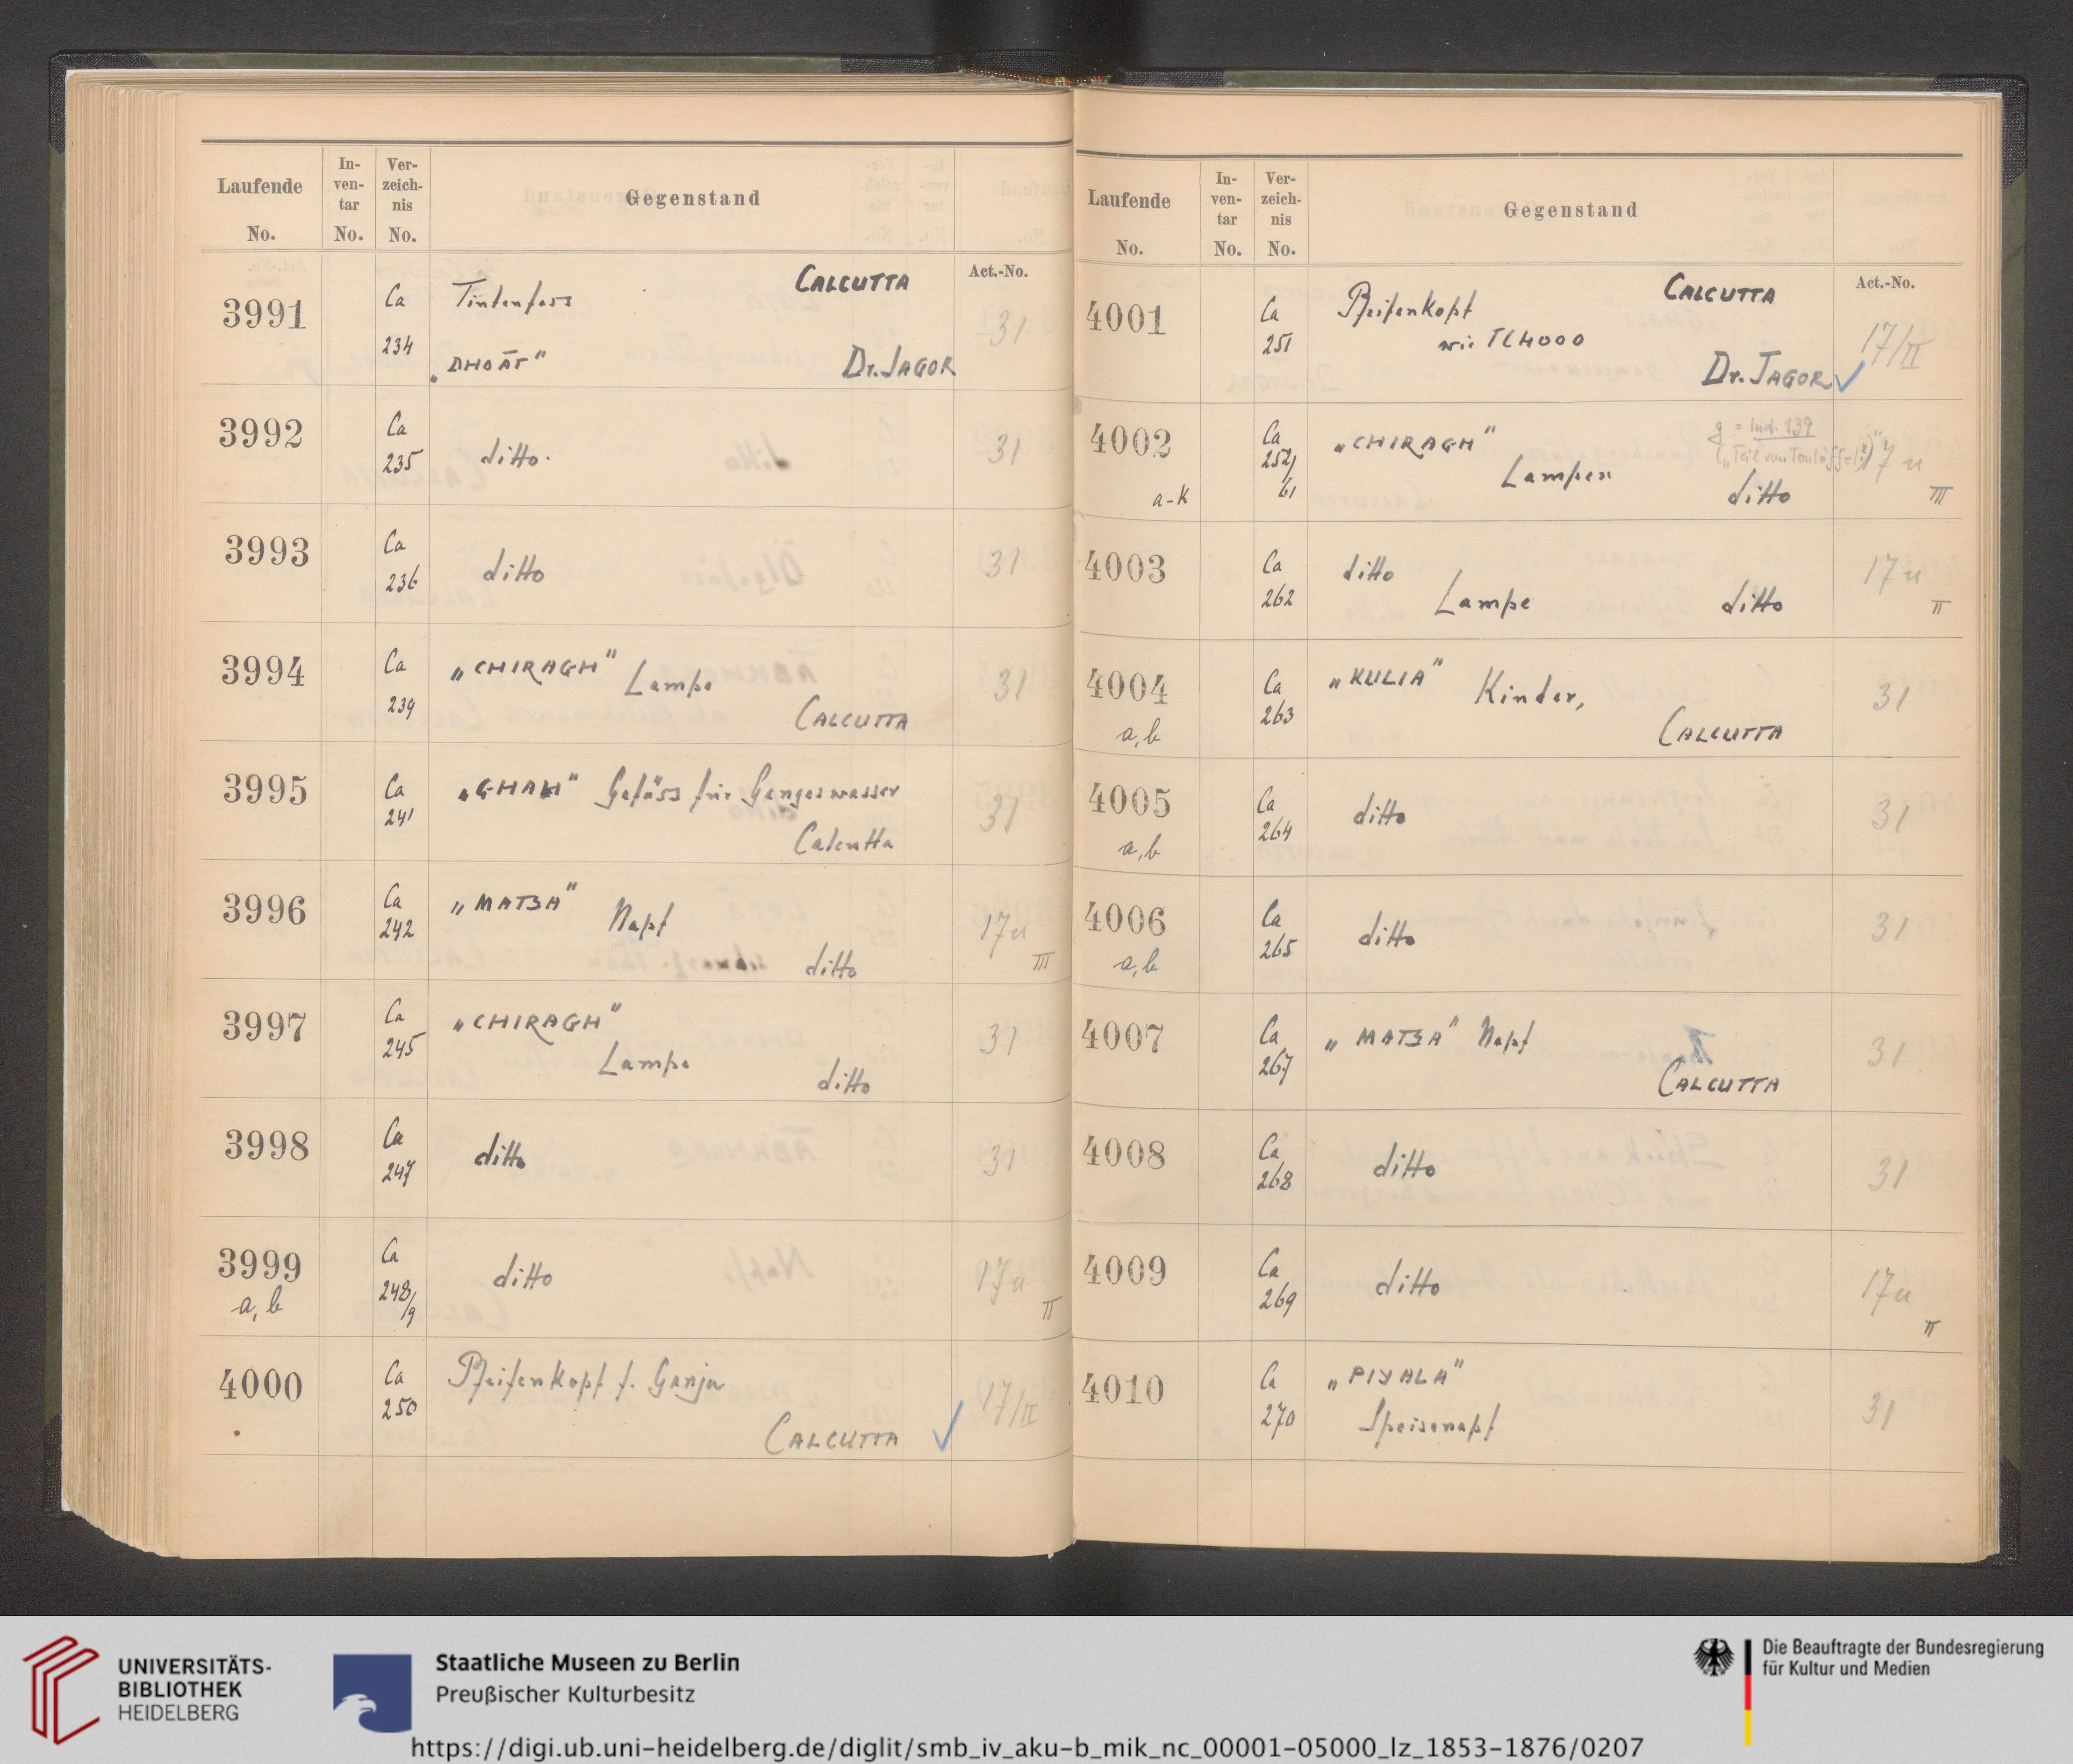 Laufende No.
In-ven-tar No.
Ver-zeich-nis No.
Gegenstand
Act.-No.
3991 Ca 234 Tintenfass CALCUTTA 31
„DHOĀT" Dr. JAGOR
3992 Ca 235 ditto. 31
3993 Ca 236 ditto 31
3994 Ca 239 „CHIRAGH" Lampe 31
CALCUTTA
3995 Ca 241 Gefäss für Gangeswasser 31
Calcutta
3996 Ca 242 „MATSA" Napf 17u III
ditto
3997 Ca 245 „CHIRAGH" 31
Lampe ditto
3998 Ca 247 ditto 31
3999 a, b Ca 248/9 ditto 17u II
4000 Ca 250 Pfeifenkopf f. Ganja 17/II
CALCUTTA ✓
Laufende No.
In-ven-tar No.
Ver-zeich-nis No.
Gegenstand
Act.-No.
4001 Ca 251 Pfeifenkopf CALCUTTA 17/II
wie TC4000
Dr. JAGOR ✓
4002 a-k Ca 252/61 „CHIRAGH" g = bid. 139 17u III
(„Teil von Tonlöffel?")
Lampen ditto
4003 Ca 262 ditto 17u II
Lampe ditto
4004 a, b Ca 263 „KULIA" Kinder, 31
CALCUTTA
4005 a, b Ca 264 ditto 31
4006 a, b Ca 265 ditto 31
4007 Ca 267 „MATSA" Napf 31
CALCUTTA
4008 Ca 268 ditto 31
4009 Ca 269 ditto 17u II
4010 Ca 270 „PIYALA" 31
Speisenapf
UNIVERSITÄTS-
BIBLIOTHEK
HEIDELBERG
Staatliche Museen zu Berlin
Preußischer Kulturbesitz
Die Beauftragte der Bundesregierung
für Kultur und Medien
https://digi.ub.uni-heidelberg.de/diglit/smb_iv_aku-b_mik_nc_00001-05000_lz_1853-1876/0207